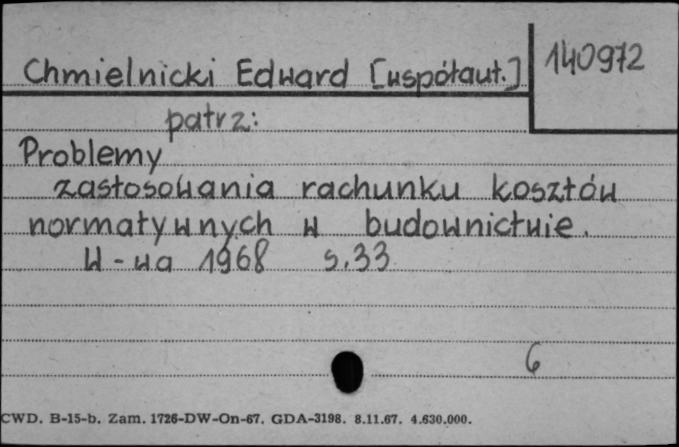 140972
Chmielnicki Edward [współaut.]
patrz:
Problemy
zastosowania rachunku kosztów
normatywnych w budownictwie.
W-wa 1968 s.33
6
CWD. B-15-b. Zam. 1726-DW-On-67. GDA-3198. 8.11.67. 4.630.000.